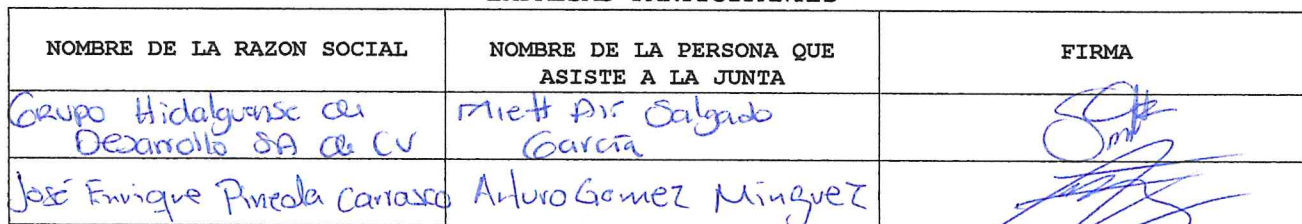 EMPRESAS PARTICIPANTES
NOMBRE DE LA RAZON SOCIAL
NOMBRE DE LA PERSONA QUE
ASISTE A LA JUNTA
FIRMA
Grupo Hidalguense de
Desarrollo SA de CV
Salgado
García
José Enrique Pineda Carrasco
Arturo Gomez Minguez